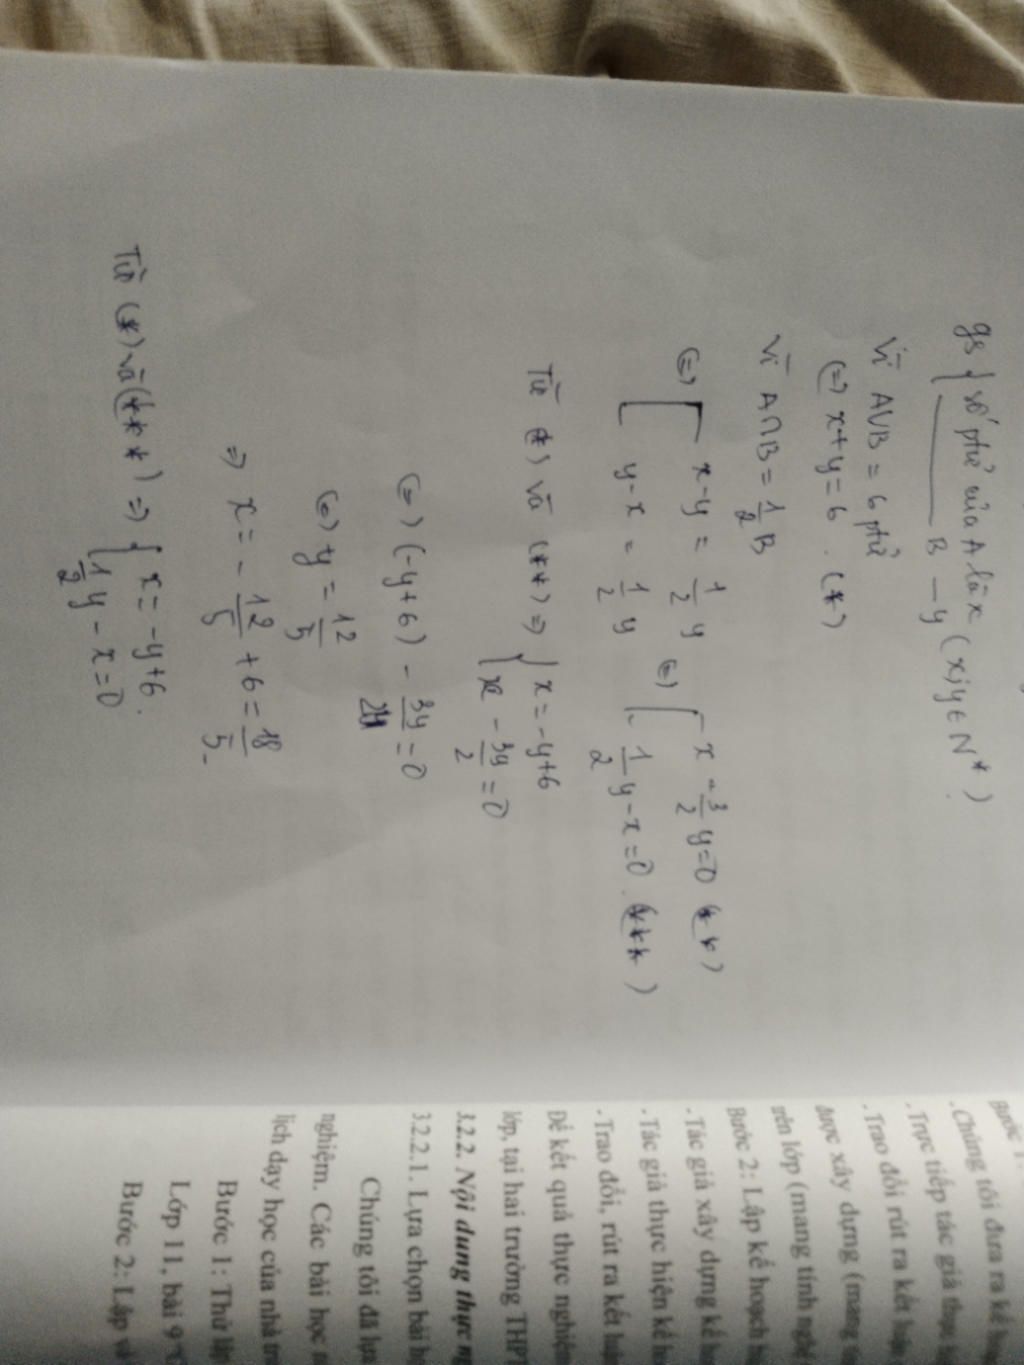 gs { số phtử của A là x (x;y ∈ N*)
____ B — y
Vì A∪B = 6 ptử
(=) x+y=6. (*)
Vì A∩B = 1/2 B
(=) [ x-y = 1/2 y (=) [ x - 3/2 y=0 (**)
y-x = 1/2 y 1/2 y-x=0. (***)
Từ (*) và (**) => { x = -y+6
x - 3y/2 = 0
(=) (-y+6) - 3y/2 = 0
(=) y = 12/5
=> x = - 12/5 + 6 = 18/5
Từ (*) và (***) => { x = -y+6.
1/2 y - x = 0
. Chúng tôi đưa ra kế
. Trực tiếp tác giả
. Trao đổi rút ra kết
được xây dựng (mang
trên lớp (mang tính
Bước 2: Lập kế hoạch
. Tác giả xây dựng kế
. Tác giả thực hiện kế
. Trao đổi, rút ra kết
Để kết quả thực nghiệm
lớp, tại hai trường THPT
3.2.2. Nội dung thực
3.2.2.1. Lựa chọn bài
Chúng tôi đã
nghiệm. Các bài học
lịch dạy học của nhà
Bước 1: Thử
Lớp 11, bài 9
Bước 2: Lập